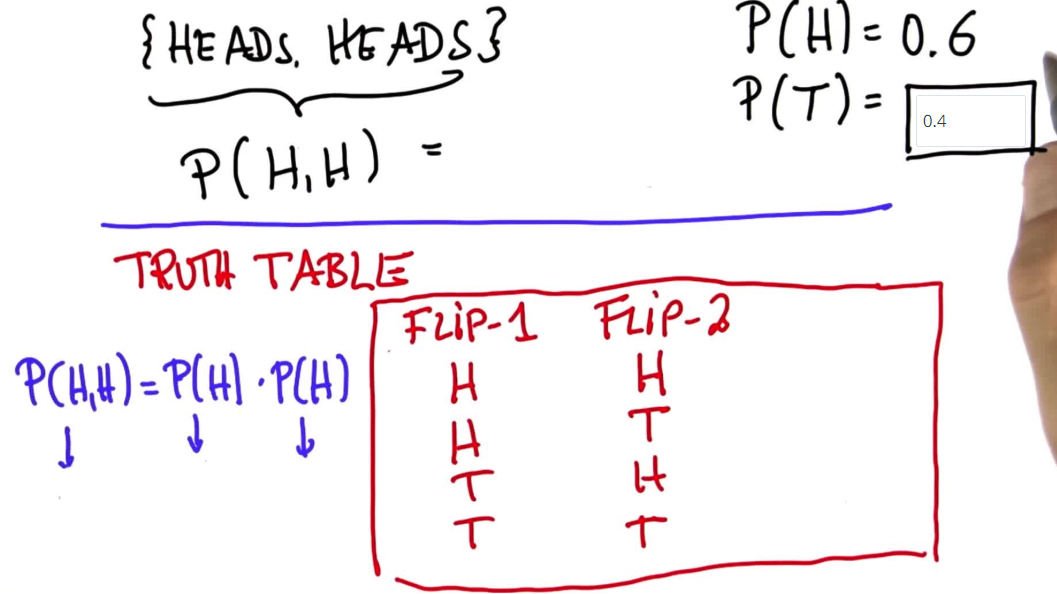 {HEADS, HEADS}
P(H,H) =
P(H) = 0.6
P(T) = 0.4
TRUTH TABLE
P(H,H) = P(H) · P(H)
↓ ↓ ↓
FLiP-1 FLiP-2
H H
H T
T H
T T